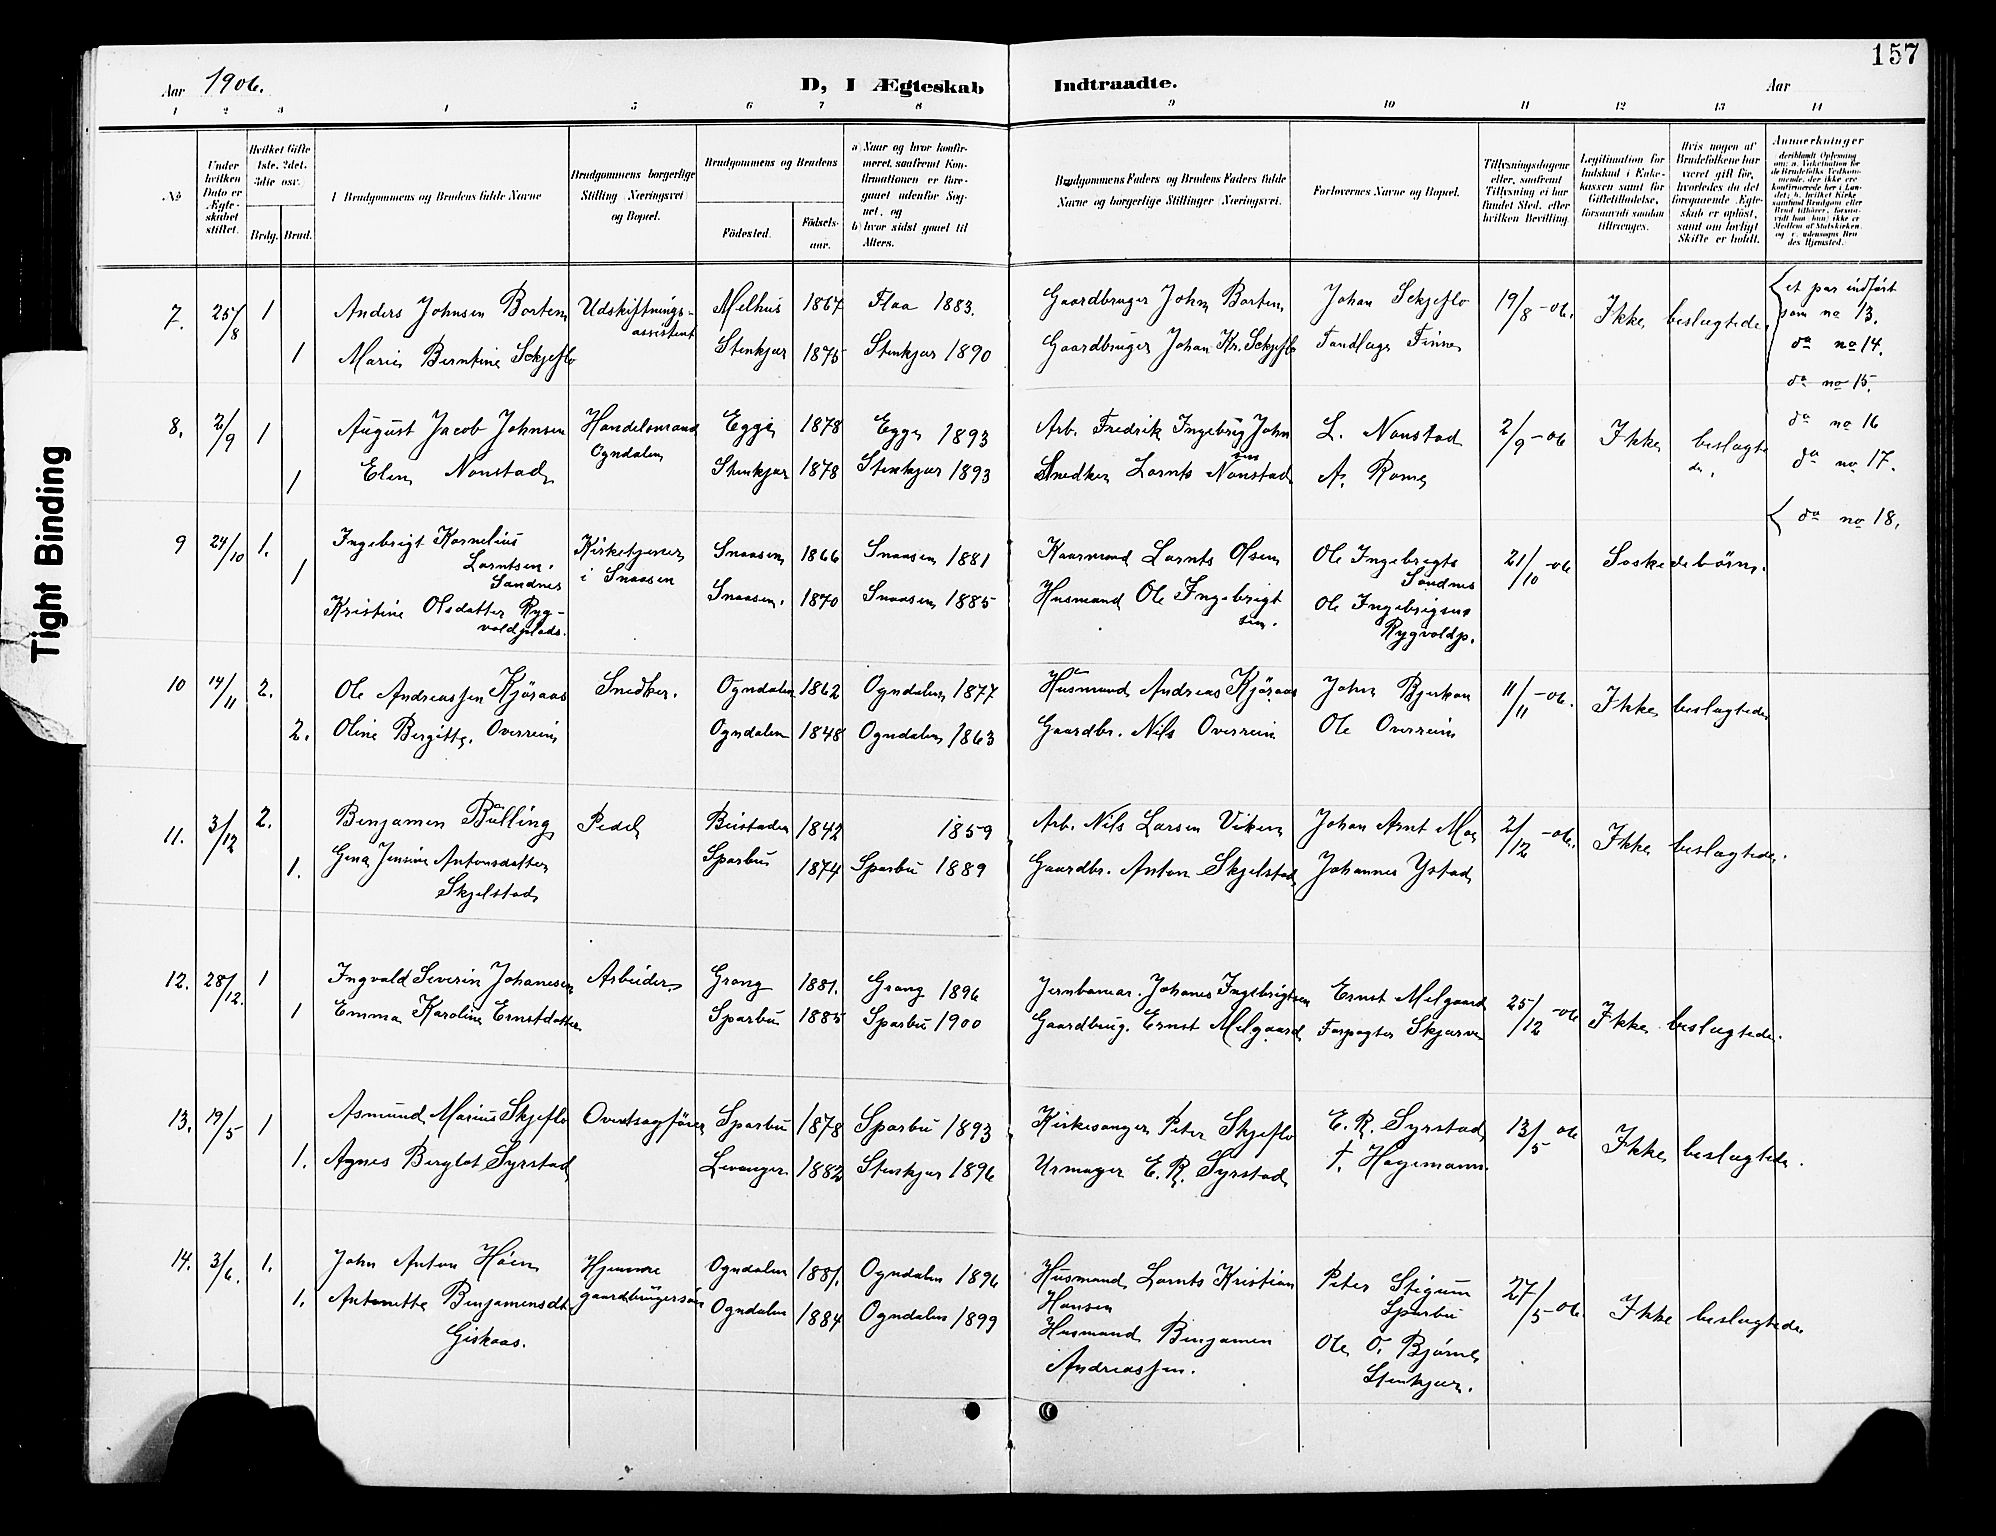 157
Tight Binding
Aar 1906. D, I Ægteskab Indtraadte. Aar
1 2 3 4 5 6 7 8 9 10 11 12 13 14
No
Under hvilken Dato er Ægteskabet stiftet.
Hvilket Gifte 1ste. 2det. 3die osv.
Brdg. Brud.
Brudgommens og Brudens fulde Navne
Brudgommens borgerlige Stilling (Næringsvei) og Bopæl.
Brudgommens og Brudens
Fødested. Fødselsaar.
a) Naar og hvor konfirmeret, saafremt Konfirmationen er foregaaet udenfor Sognet, og
b) hvor sidst gaaet til Alters.
Brudgommens Faders og Brudens Faders fulde Navne og borgerlige Stillinger (Næringsvei.
Forlovernes Navne og Bopæl.
Tillysningsdagene eller, saafremt Tillysning ei har fundet Sted, efter hvilken Bevilling
Legitimation for Indskud i Enkekassen samt for Giftetilladelse, forsaavidt saadan tiltrænges.
Hvis nogen af Brudefolkene har været gift før, hvorledes da det foregaaende Ægteskab er opløst, samt om lovligt Skifte er holdt.
Anmerkninger
7. 25/8 1 Anders Johnsen Borten Udskiftnings-assistent Melhus 1867 Flaa 1883. Gaardbruger John Borten Johan Skjeflo 19/8-06. Ikke beslægtede
1 Marie Berntine Skjeflo Stenkjær 1875 Stenkjær 1890 Gaardbruger Johan Kr. Skjeflo Tandlæge Finne
et par indført som no 13.
do no 14.
do no 15.
do no 16
do no 17.
do no 18.
8. 2/9 1 August Jacob Johnsen Handelsmand Ogndalen Egge 1878 Egge 1893 Arb. Fredrik Ingebrig Johnsen L. Nonstad 2/9-06 Ikke beslægtede.
1 Elen Nonstad Stenkjær 1878 Stenkjær 1893 Snedker Lornts Nonstad A. Rome
9 24/10 1. Ingebrigt Kornelius Lorntsen. Sandnes Kirketjener i Snaasen Snaasen 1866 Snaasen 1881 Kaarmand Lornts Olsen Ole Ingebrigts Sandnes 21/10-06 Søskedebørn.
1 Kristine Olsdatter Rygvoldplads. Snaasen. 1870 Snaasen 1885 Husmand Ole Ingebrigtsen. Ole Ingebrigsen Rygvoldp.
10 14/11 2. Ole Andreassen Kjøraas Snedker. Ogndalen 1862 Ogndalen 1877 Husmand Andreas Kjøraas John Bjerkan 11/11-06. Ikke beslægtede
2. Oline Bergitte Overrein Ogndalen 1848 Ogndalen 1863 Gaardbr. Nils Overrein Ole Overrein
11. 3/12 2. Benjamen Bølling Pedel Beistaden 1842 1859 Arb. Nils Larsen Viken Johan Arnt Moe 2/12-06. Ikke beslægtede.
1. Gina Jensine Antonsdatter Skjelstad Sparbu 1874 Sparbu 1889 Gaardbr. Anton Skjelstad Johannes Ystad
12. 28/12. 1 Ingvald Severin Johanesen Arbeider. Grong 1881. Grong 1896 Jernbanear. Johanes Ingebrigtsen Ernst Melgaard 25/12-06 Ikke beslægtede.
1 Emma Karoline Ernstdatter Sparbu 1885 Sparbu 1900 Gaardbrug. Ernst Melgaard Forpagter Skjærve
13. 19/5 1 Asmund Marius Skjeflo Overtsagfører Sparbu 1878 Sparbu 1893 Kirkesanger Peter Skjeflo E. R. Syrstad 13/5 06 Ikke beslægtede.
1. Agnes Berglot Syrstad Levanger 1882 Stenkjær 1896 Urmager E. R. Syrstad T. Hagemann.
14. 3/6. 1. John Anton Høin Hjemme gaardbrugersøn Ogndalen 1881. Ogndalen 1896 Husmand Lornts Kristian Hansen Peter Stigum Sparbu 27/5-06. Ikke beslægtede
1. Antonette Benjamensdt. Giskaas. Ogndalen 1884 Ogndalen 1899 Husmand Benjamen Andreassen. Ole O. Bjørne Stenkjær.